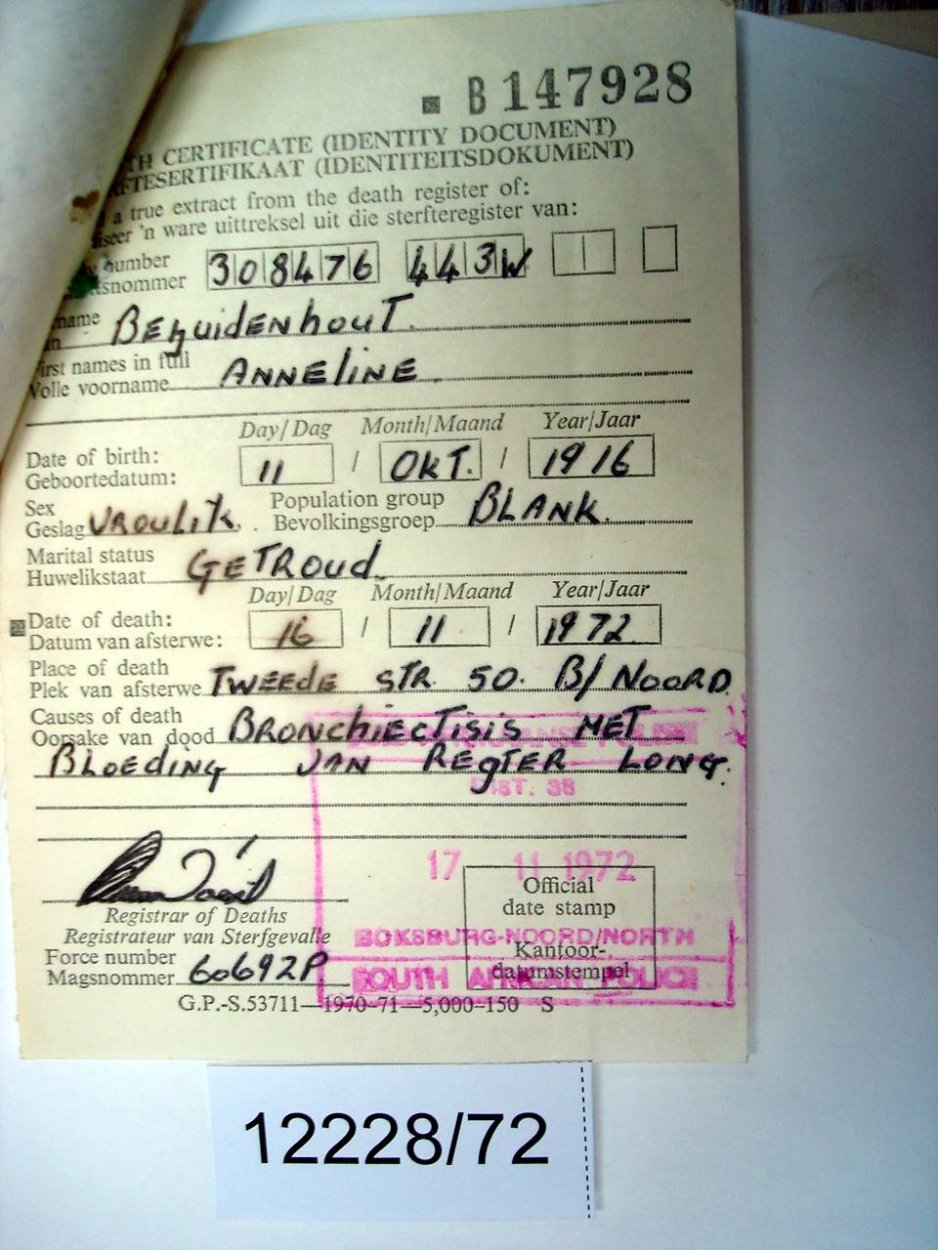 B147928
TH CERTIFICATE (IDENTITY DOCUMENT)
FTESERTIFIKAAT (IDENTITEITSDOKUMENT)
a true extract from the death register of:
seer 'n ware uittreksel uit die sterfteregister van:
number
snommer 308476 443W
name
BEzuidENhouT.
First names in full
Volle voorname ANNELINE
Day/Dag Month/Maand Year/Jaar
Date of birth:
Geboortedatum: 11 / OKT. / 1916
Sex Population group
Geslag VROULIK. Bevolkingsgroep BLANK.
Marital status
Huwelikstaat GETROUD
Day/Dag Month/Maand Year/Jaar
Date of death:
Datum van afsterwe: 16 / 11 / 1972
Place of death
Plek van afsterwe TWEEDE STR. 50. B/NOORD.
Causes of death
Oorsake van dood BRONCHIECTISIS MET
BLOEDING VAN REGTER LONG.
DIST. 38
17 11 1972
Official
date stamp
Registrar of Deaths
Registrateur van Sterfgevalle
BOKSBURG-NOORD/NORTH
Kantoor-
datumstempel
Force number
Magsnommer 60692P
SOUTH AFRICAN POLICE
G.P.-S.53711—1970-71—5,000-150 S
12228/72